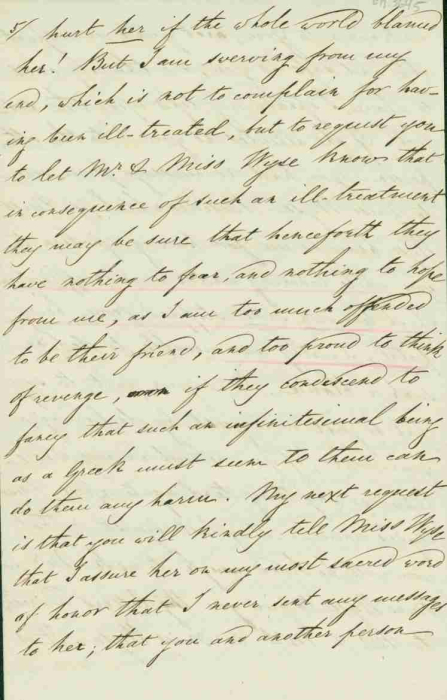 5/ hurt her if the whole world blamed
her! But I am swerving from my
end, which is not to complain for hav-
ing been ill-treated, but to request you
to let Mr. & Miss Wyse know that
in consequence of such an ill-treatment
they may be sure that henceforth they
have nothing to fear, and nothing to hope
from me, as I am too much offended
to be their friend, and too proud to think
of revenge, if they condiscend to
fancy that such an infinitesimal being
as a Greek must seem to them can
do them any harm. My next request
is that you will kindly tell Miss Wyse
that I assure her on my most sacred word
of honor that I never sent any messages
to her; that you and another person